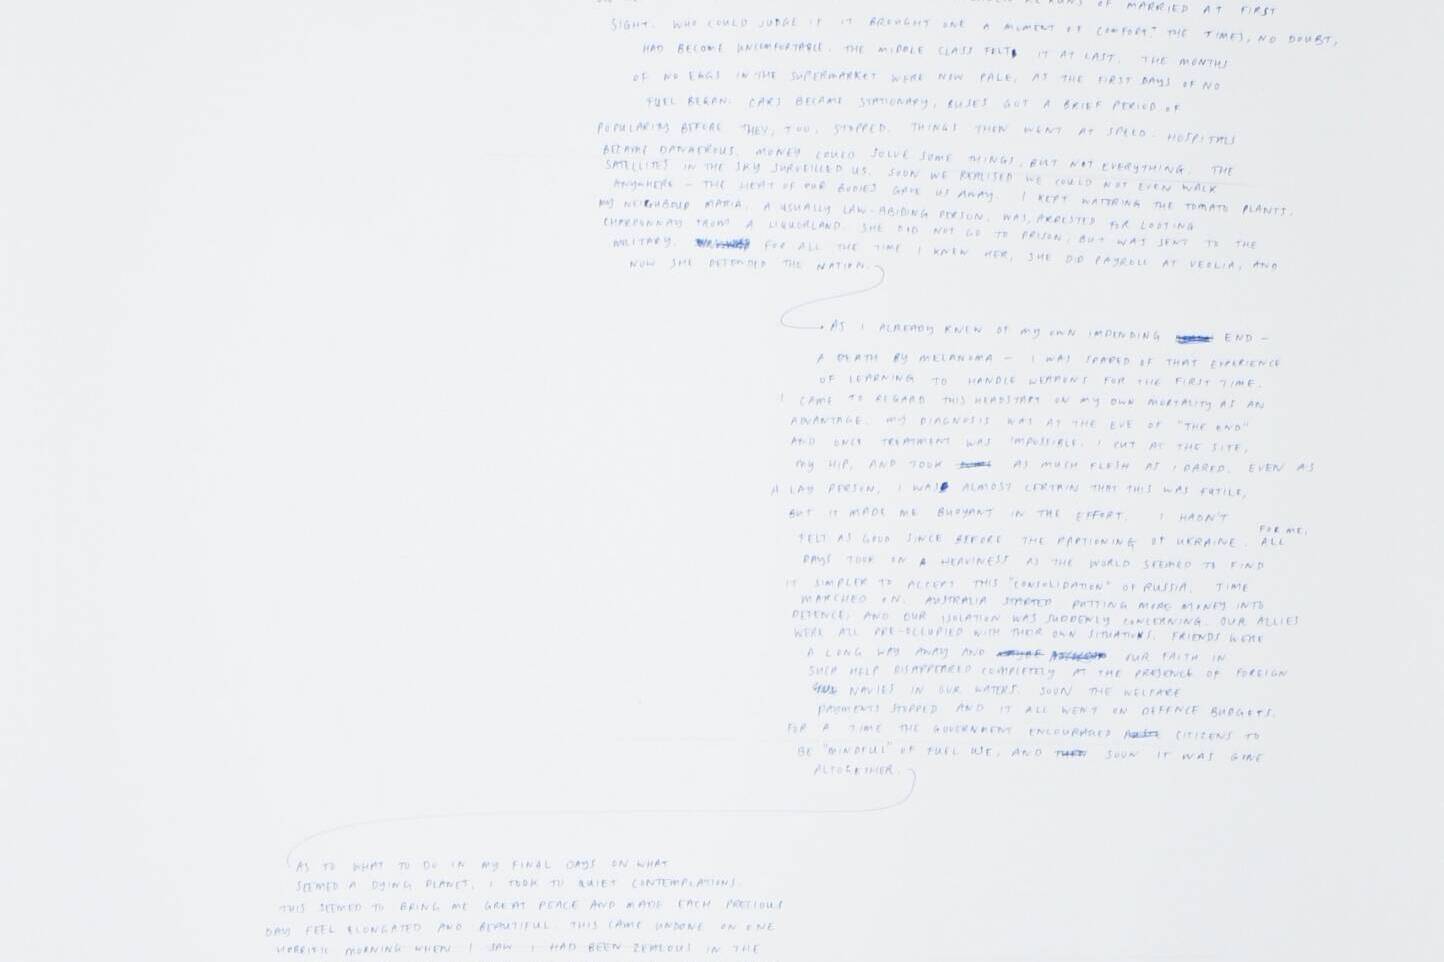 RERUNS OF MARRIED AT FIRST
SIGHT. WHO COULD JUDGE IF IT BROUGHT ONE A MOMENT OF COMFORT? THE TIMES, NO DOUBT,
HAD BECOME UNCOMFORTABLE. THE MIDDLE CLASS FELT IT AT LAST. THE MONTHS
OF NO EGGS IN THE SUPERMARKET WERE NOW PALE, AS THE FIRST DAYS OF NO
FUEL BEGAN. CARS BECAME STATIONARY, BUSES GOT A BRIEF PERIOD OF
POPULARITY BEFORE THEY, TOO, STOPPED. THINGS THEN WENT AT SPEED. HOSPITALS
BECAME DANGEROUS. MONEY COULD SOLVE SOME THINGS, BUT NOT EVERYTHING. THE
SATELLITES IN THE SKY SURVEILLED US. SOON WE REALISED WE COULD NOT EVEN WALK
ANYWHERE – THE HEAT OF OUR BODIES GAVE US AWAY. I KEPT WATERING THE TOMATO PLANTS.
MY NEIGHBOUR MARIA, A USUALLY LAW-ABIDING PERSON, WAS ARRESTED FOR LOOTING
CHARDONNAY FROM A LIQUORLAND. SHE DID NOT GO TO PRISON, BUT WAS SENT TO THE
MILITARY. FOR ALL THE TIME I KNEW HER, SHE DID PAYROLL AT VEOLIA, AND
NOW SHE DEFENDED THE NATION.
AS I ALREADY KNEW OF MY OWN IMPENDING END –
A DEATH BY MELANOMA – I WAS SPARED OF THAT EXPERIENCE
OF LEARNING TO HANDLE WEAPONS FOR THE FIRST TIME.
I CAME TO REGARD THIS HEADSTART ON MY OWN MORTALITY AS AN
ADVANTAGE. MY DIAGNOSIS WAS AT THE EVE OF "THE END"
AND ONCE TREATMENT WAS IMPOSSIBLE, I CUT AT THE SITE,
MY HIP, AND TOOK AS MUCH FLESH AS I DARED. EVEN AS
A LAY PERSON, I WAS ALMOST CERTAIN THAT THIS WAS FUTILE,
BUT IT MADE ME BUOYANT IN THE EFFORT. I HADN'T
FELT AS GOOD SINCE BEFORE THE PARTIONING OF UKRAINE. FOR ME, ALL
DAYS TOOK ON A HEAVINESS AS THE WORLD SEEMED TO FIND
IT SIMPLER TO ACCEPT THIS "CONSOLIDATION" OF RUSSIA. TIME
MARCHED ON. AUSTRALIA STARTED PUTTING MORE MONEY INTO
DEFENCE, AND OUR ISOLATION WAS SUDDENLY CONCERNING. OUR ALLIES
WERE ALL PRE-OCCUPIED WITH THEIR OWN SITUATIONS. FRIENDS WERE
A LONG WAY AWAY AND OUR FAITH IN
SUCH HELP DISAPPEARED COMPLETELY AT THE PRESENCE OF FOREIGN
NAVIES IN OUR WATERS. SOON THE WELFARE
PAYMENTS STOPPED AND IT ALL WENT ON DEFENCE BUDGETS.
FOR A TIME THE GOVERNMENT ENCOURAGED CITIZENS TO
BE "MINDFUL" OF FUEL USE, AND THEN SOON IT WAS GONE
ALTOGETHER.
AS TO WHAT TO DO IN MY FINAL DAYS ON WHAT
SEEMED A DYING PLANET, I TOOK TO QUIET CONTEMPLATIONS.
THIS SEEMED TO BRING ME GREAT PEACE AND MADE EACH PRECIOUS
DAY FEEL ELONGATED AND BEAUTIFUL. THIS CAME UNDONE ON ONE
HORRIFIC MORNING WHEN I SAW I HAD BEEN ZEALOUS IN THE